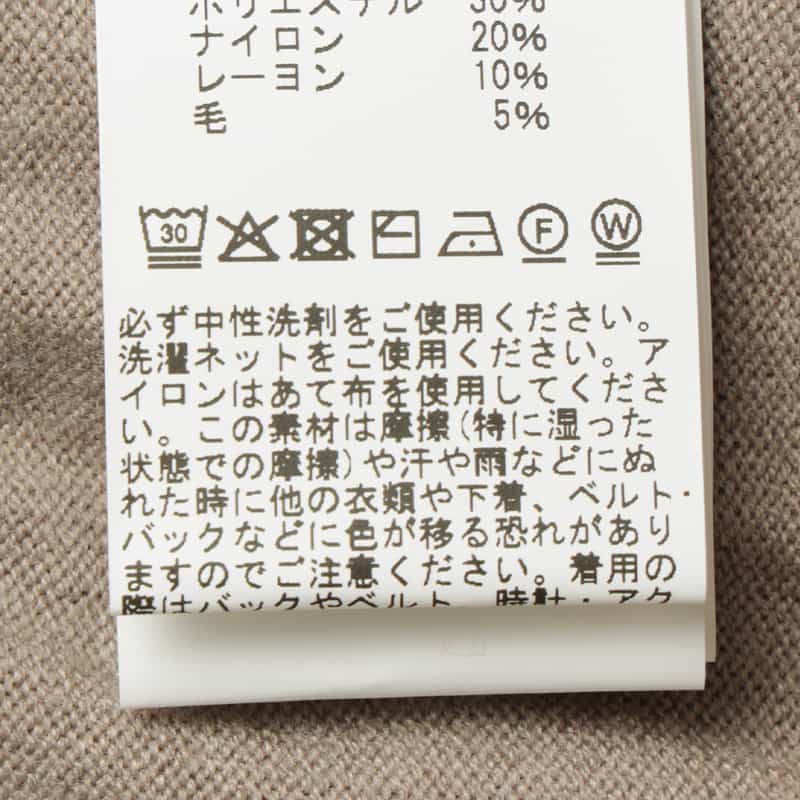 ポリエステル 30%
ナイロン 20%
レーヨン 10%
毛 5%
30 F W
必ず中性洗剤をご使用ください。
洗濯ネットをご使用ください。ア
イロンはあて布を使用してくださ
い。この素材は摩擦(特に湿った
状態での摩擦)や汗や雨などにぬ
れた時に他の衣類や下着、ベルト・
バックなどに色が移る恐れがあり
ますのでご注意ください。着用の
際はバックやベルト、時計・アク